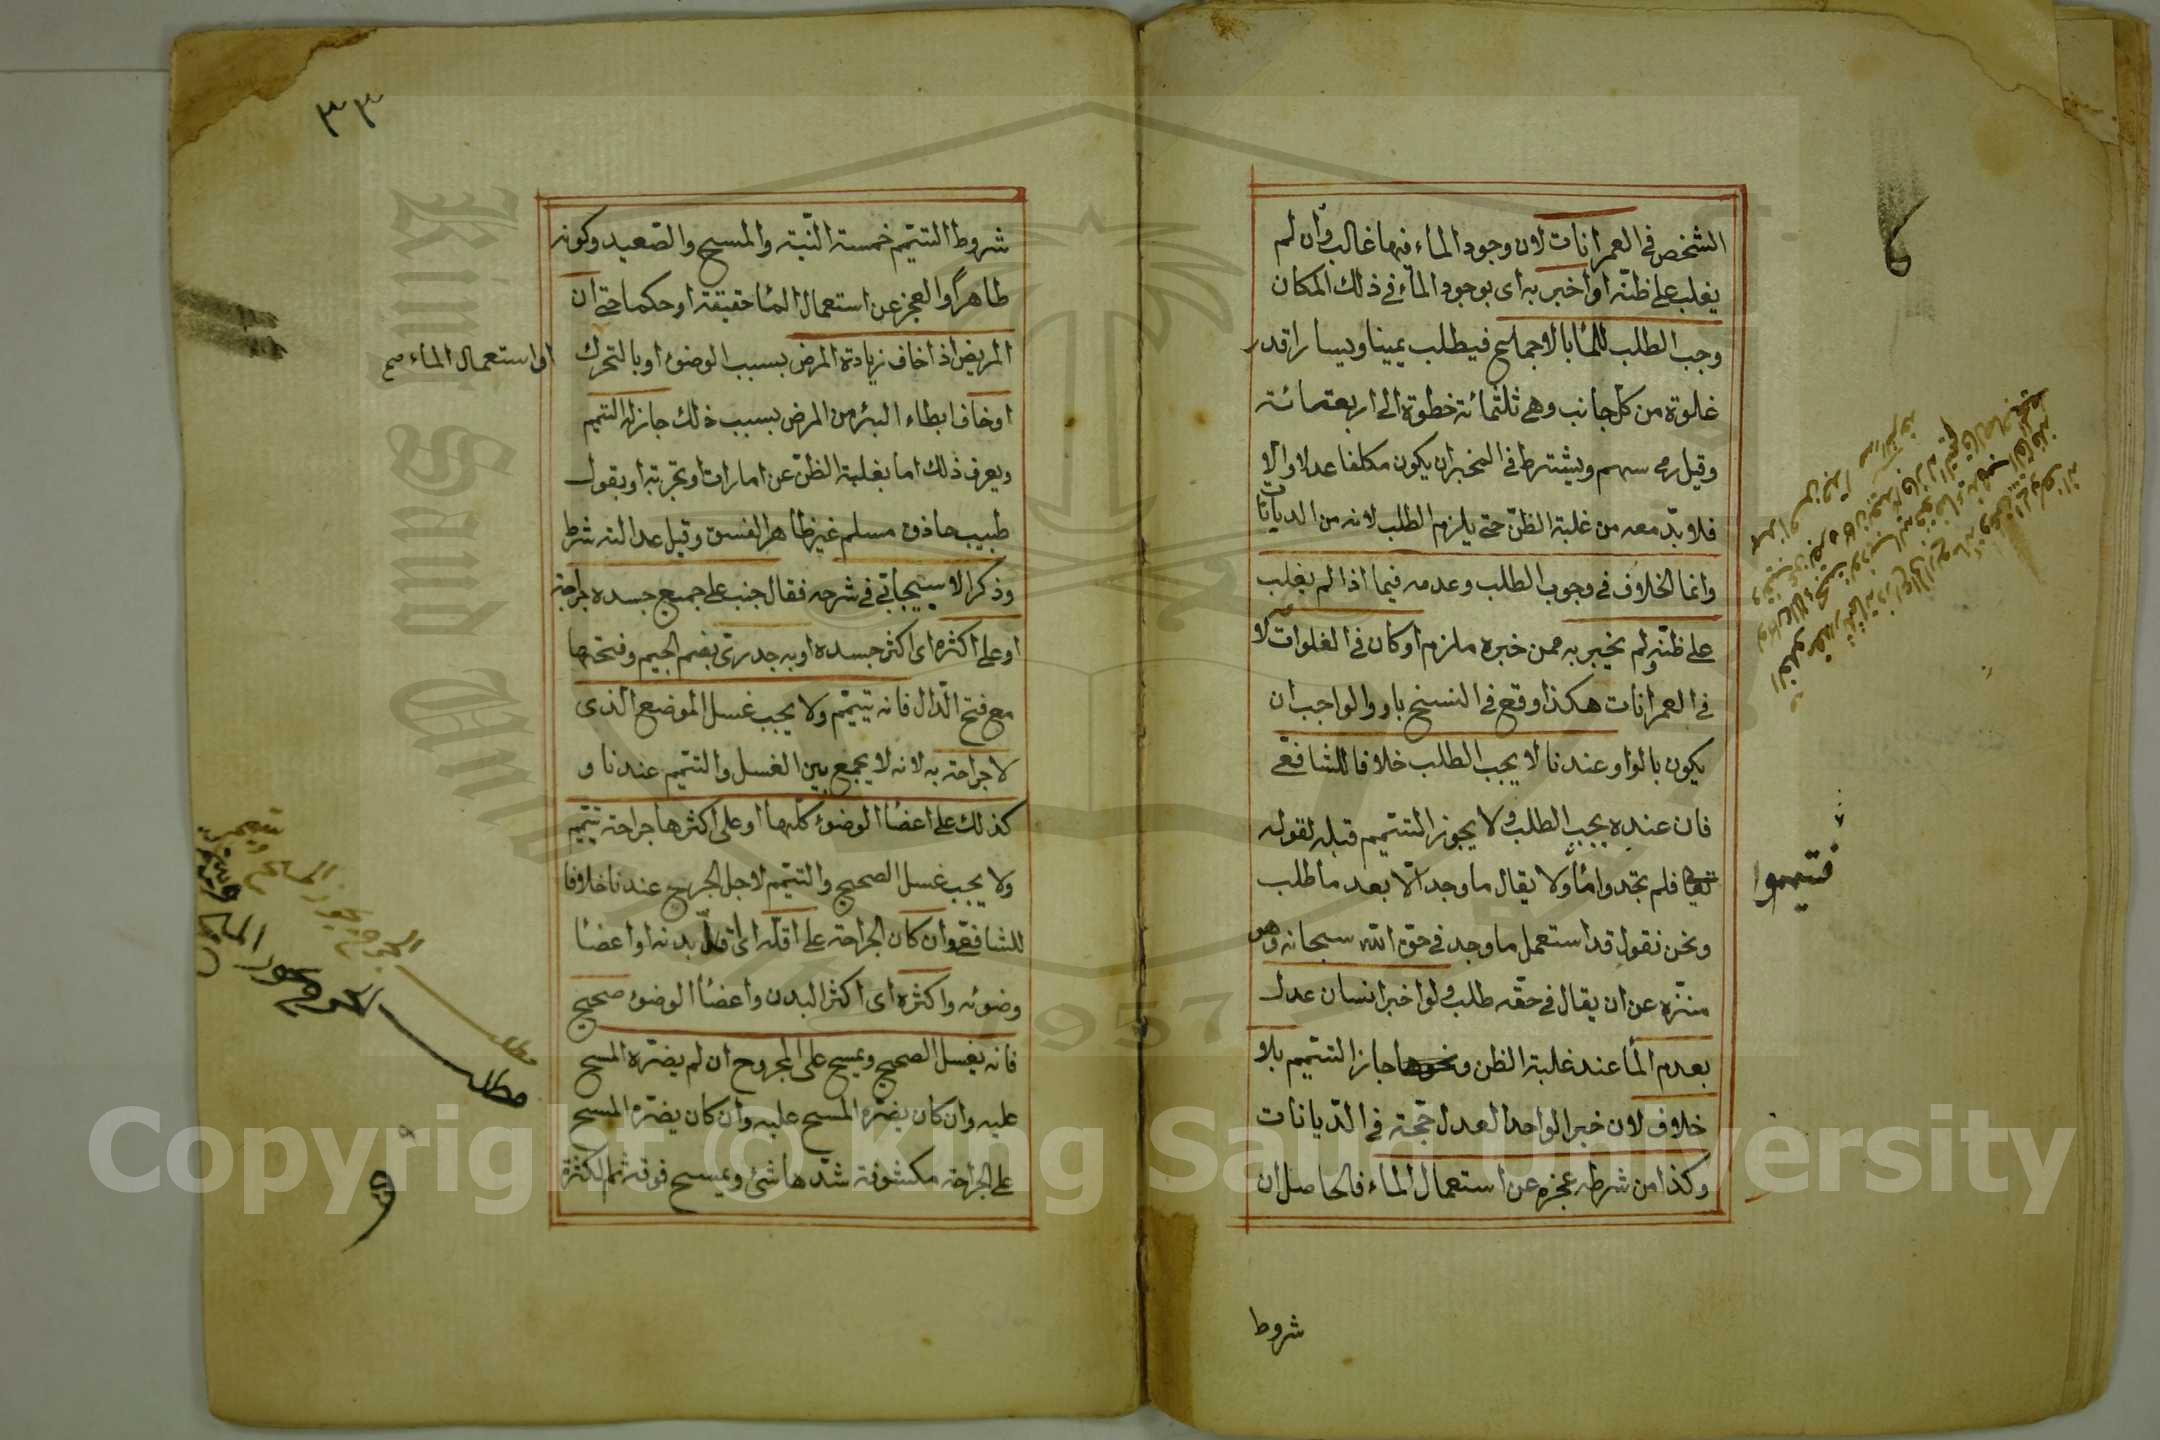 الشخص في العمرانات لان وجود الماء فيها غالب وان لم
يغلب على ظنّه او اخبر به اى بوجود الماء في ذلك المكان
وجب الطلب للماء بالاجماع فيطلب يمينا ويسارا قدر
غلوة من كل جانب وهي ثلثمائة خطوة الى اربعمائة
وقيل رمى سهم ويشترط في المخبر ان يكون مكلفا عدلا والا
فلا بدّ معه من غلبة الظنّ حتى يلزم الطلب لانه من الديانات
وانما الخلاف في وجوب الطلب وعدمه فيما اذا لم يغلب
على ظنّه ولم يخبر به ممن خبره ملزم او كان في الفلوات لا
في العمرانات هكذا وقع في النسخ باو والواجب ان
يكون بالواو عندنا لا يجب الطلب خلافا للشافعّي
فان عنده يجب الطلب ولا يجوز التيمّم قبله لقوله
تعالى فلم تجدوا ماء ولا يقال ما وجد الّا بعد ما طلب
فتيمموا
ونحن نقول قد استعمل ما وجد في حقّ الله سبحانه وهو
منزّه عن ان يقال في حقّه طلب ولو اخبر انسان عدل
بعدم الماء عند غلبة الظن جاز التيمّم بلا
خلاف لان خبر الواحد العدل حجّة في الدّيانات
وكذا من شرطه عجزه عن استعمال الماء فالحاصل ان
شروط
٣٣
شروط التيمّم خمسة النّية والمسح والصّعيد وكونه
طاهرًا والعجز عن استعمال الماء حقيقة او حكما حتى ان
المريض اذا خاف زيادة المرض بسبب الوضوء او بالتحرك
او استعمال الماء صح
او خاف ابطاء البرء من المرض بسبب ذلك جاز له التيمم
ويعرف ذلك اما بغلبة الظنّ عن امارات او تجربة او بقول
طبيب حاذق مسلم غير ظاهر الفسق وقيل عدالته شرط
وذكر الاسبيجابّي في شرحه فقال جنب على جميع جسده جراحة
او على اكثره اى اكثر جسده او به جدرىّ بضم الجيم وفتحها
مع فتح الدّال فانه يتيمّم ولا يجب غسل الموضع الذى
لا جراحة به لانه لا يجمع بين الغسل والتيمّم عندنا و
كذلك على اعضاء الوضوء كلّها او على اكثرها جراحة يتيّمم
ولا يجب غسل الصحيح والتيمّم لاجل الجريح عندنا خلافا
للشافعّي وان كان الجراحة على اقلّه اى اقلّ بدنه او اعضاء
وضوئه واكثره اى اكثر البدن واعضاء الوضوء صحيح
فانه يغسل الصحيح ويمسح على المجروح ان لم يضرّه المسح
عليه وان كان يضرّه المسح عليه وان كان يضرّه المسح
على الجراحة مكشوفة شدّها شئ ويمسح فوقه ثم لكثرة
مطلب
مطلب
Copyright © King Saud University
1957